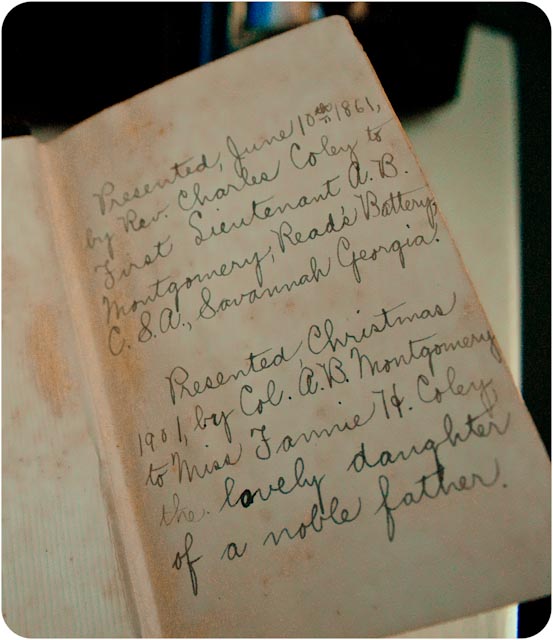 Presented, June 10th 1861,
by Rev. Charles Coley to
First Lieutenant A. B.
Montgomery, Read's Battery,
C. S. A., Savannah Georgia.
Presented, Christmas
1901, by Col. A. B. Montgomery
to Miss Fannie H. Coley,
the lovely daughter
of a noble father.